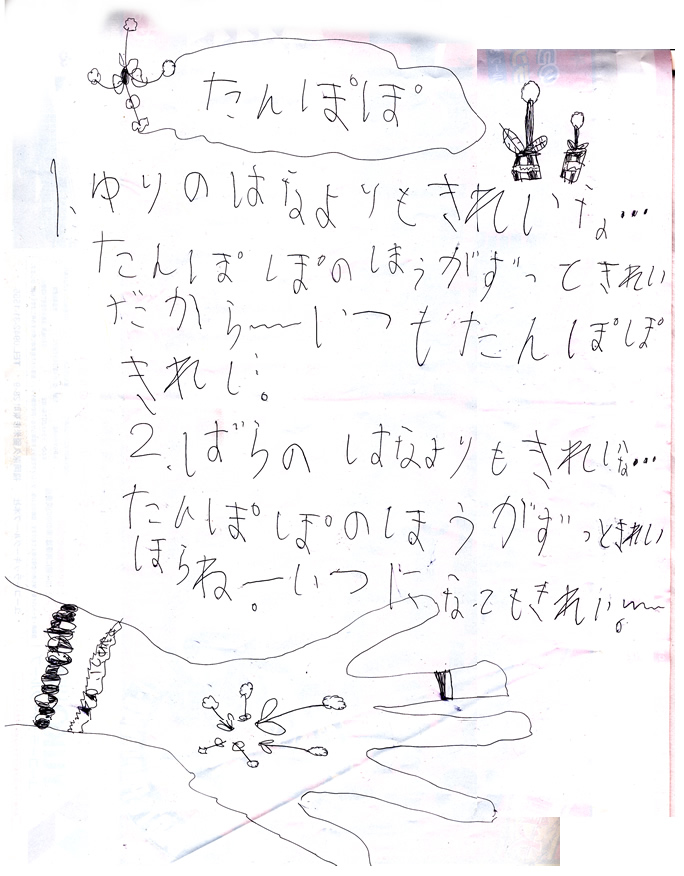 たんぽぽ
1、ゆりのはなよりもきれいな…
たんぽぽのほうがずってきれい
だから〜いつもたんぽぽ
きれい。
2、ばらのはなよりもきれいな…
たんぽぽのほうがずっときれい
ほらねーいつになてもきれい〜。